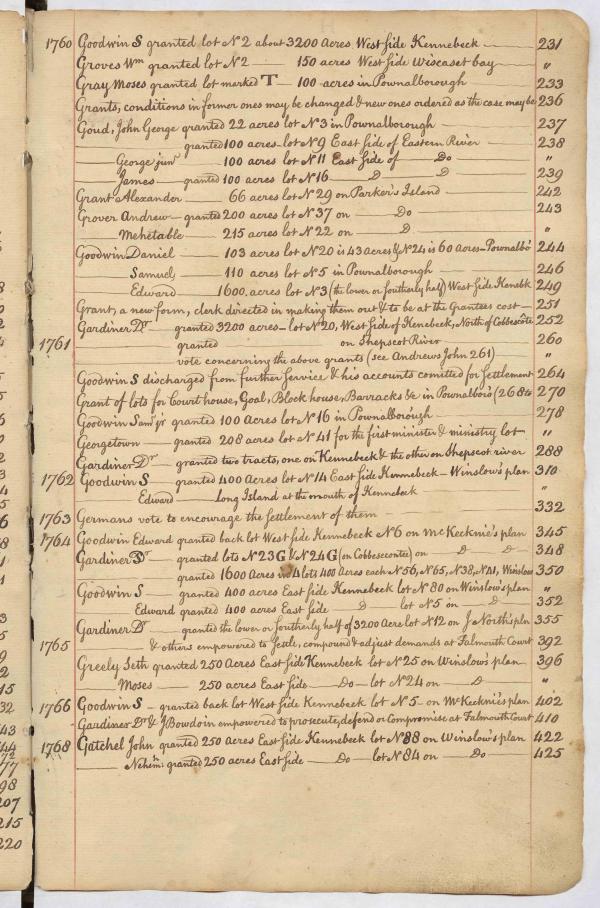 1760 Goodwin S granted lot N2 about 3200 acres West side Kennebeck 231
Groves Wm granted lot N2 150 acres West side Wiscaset bay "
Gray Moses granted lot marked T 100 acres in Pownalborough 233
Grants, conditions in former ones may be changed & new ones ordered as the case may be 236
Goud, John George granted 22 acres lot N3 in Pownalborough 237
granted 100 acres lot N9 East side of Eastern River 238
George junr 100 acres lot N11 East side of Do "
James granted 100 acres lot N16 D D 239
Grant Alexander 66 acres lot N29 on Parker's Island 242
Grover Andrew granted 200 acres lot N37 on Do 243
Mehetable 215 acres lot N22 on D "
Goodwin Daniel 103 acres lot N20 is 43 acres & N24 is 60 acres Pownalbo' 244
Samuel 110 acres lot N5 in Pownalborough 246
Edward 1600 acres lot N3 (the lower or southerly half) West side Kenebk 249
Grant, a new form, clerk directed in making them out & to be at the Grantees cost 251
Gardiner Dr granted 3200 acres lot N20, West side of Kenebeck, North of Cobbescote 252
1761 granted on Shepscot River 260
vote concerning the above grants (see Andrews John 261) "
Goodwin S discharged from further service & his accounts comitted for settlement 264
Grant of lots for Court house, Goal, Block house, Barracks &c in Pownalboro' (268& 270
Goodwin Saml jr granted 100 acres lot N16 in Pownalborough 278
Georgetown granted 208 acres lot N41 for the first minister & ministry lot "
Gardiner Dr granted two tracts, one on Kennebeck & the other on Shepscot river 288
1762 Goodwin S granted 400 acres lot N14 East side Kennebeck Winslow's plan 310
Edward Long Island at the mouth of Kennebeck "
1763 Germans vote to encourage the settlement of them 332
1764 Goodwin Edward granted back lot West side Kennebeck N6 on McKecknie's plan 345
Gardiner Dr granted lots N23G & N24G (on Cobbescontee) on D D 348
granted 1600 acres in 4 lots 400 acres each N56, N65, N38, N41, Winslow 350
Goodwin S granted 400 acres East side Kennebeck lot N80 on Winslow's plan "
Edward granted 400 acres East side D lot N5 on D 352
Gardiner Dr granted the lower or southerly half of 3200 acre lot N12 on J North's plan 355
1765 & others empowered to settle, compound & adjust demands at Falmouth Court 392
Greely Seth granted 250 acres East side Kennebeck lot N25 on Winslow's plan 396
Moses 250 acres East side Do lot N24 on D "
1766 Goodwin S granted back lot West side Kennebeck lot N5 on McKecknie's plan 402
Gardiner Dr & J Bowdoin empowered to prosecute, defend or compromise at Falmouth Court 410
1768 Gatchel John granted 250 acres East side Kennebeck lot N88 on Winslow's plan 422
Nehem: granted 250 acres East side Do lot N84 on Do 425